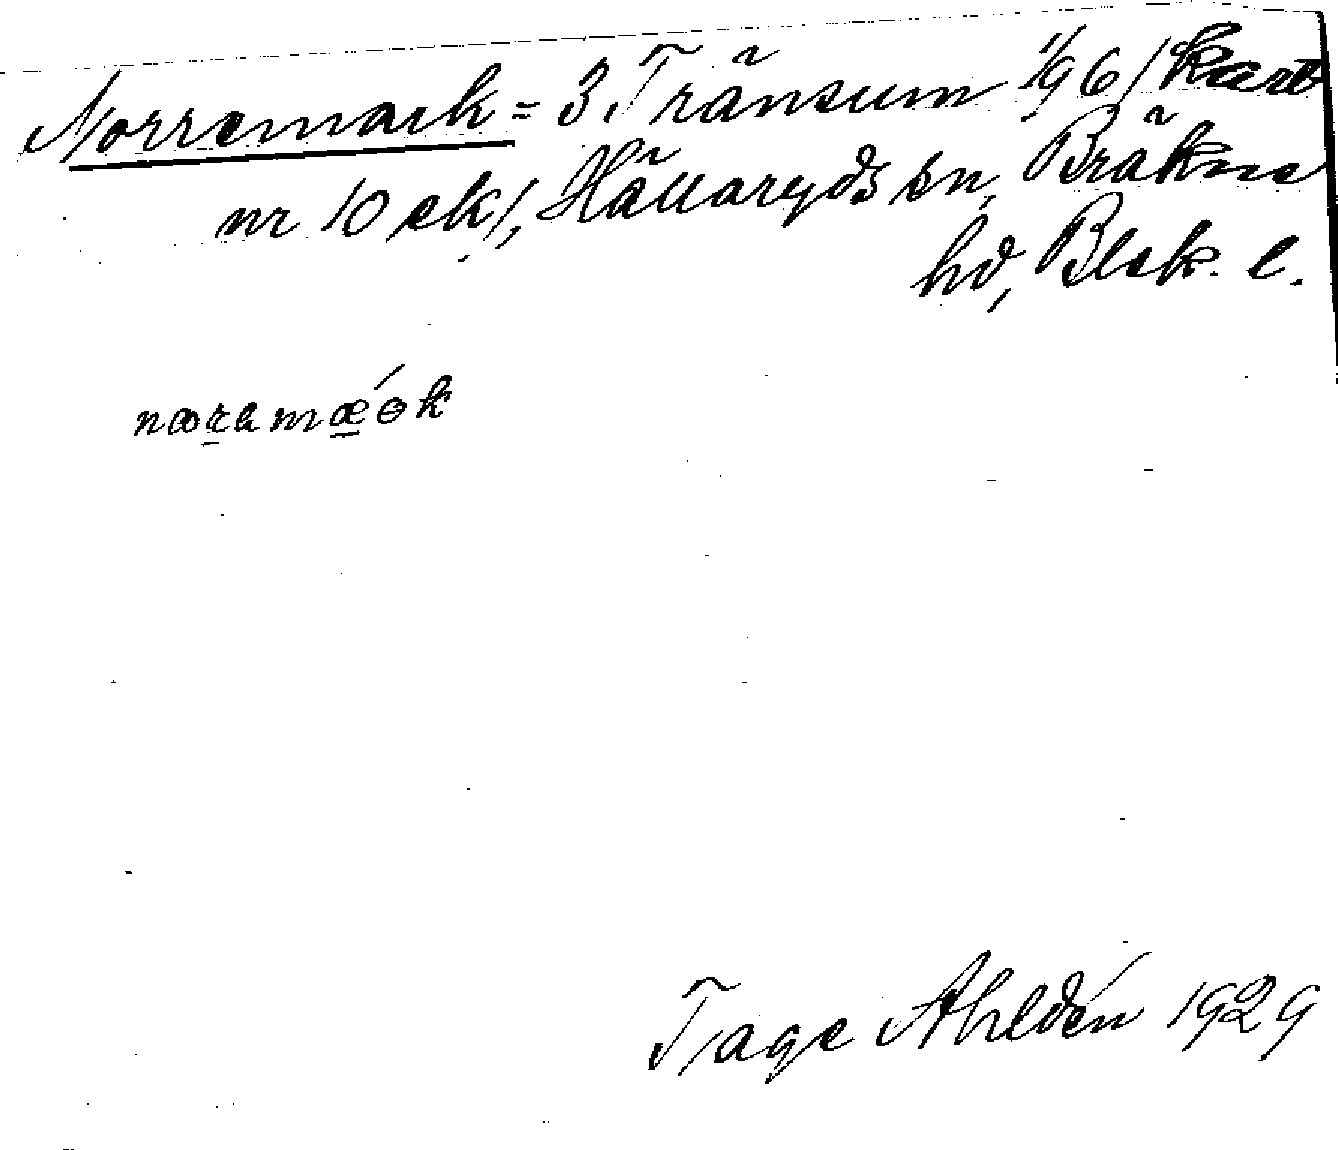 Norremark = 3 Tränsum 1/96 / kart
nr 10 ek/, Hällaryds sn, Bräkne
hd, Blek. l.
Tage Ahldén 1929